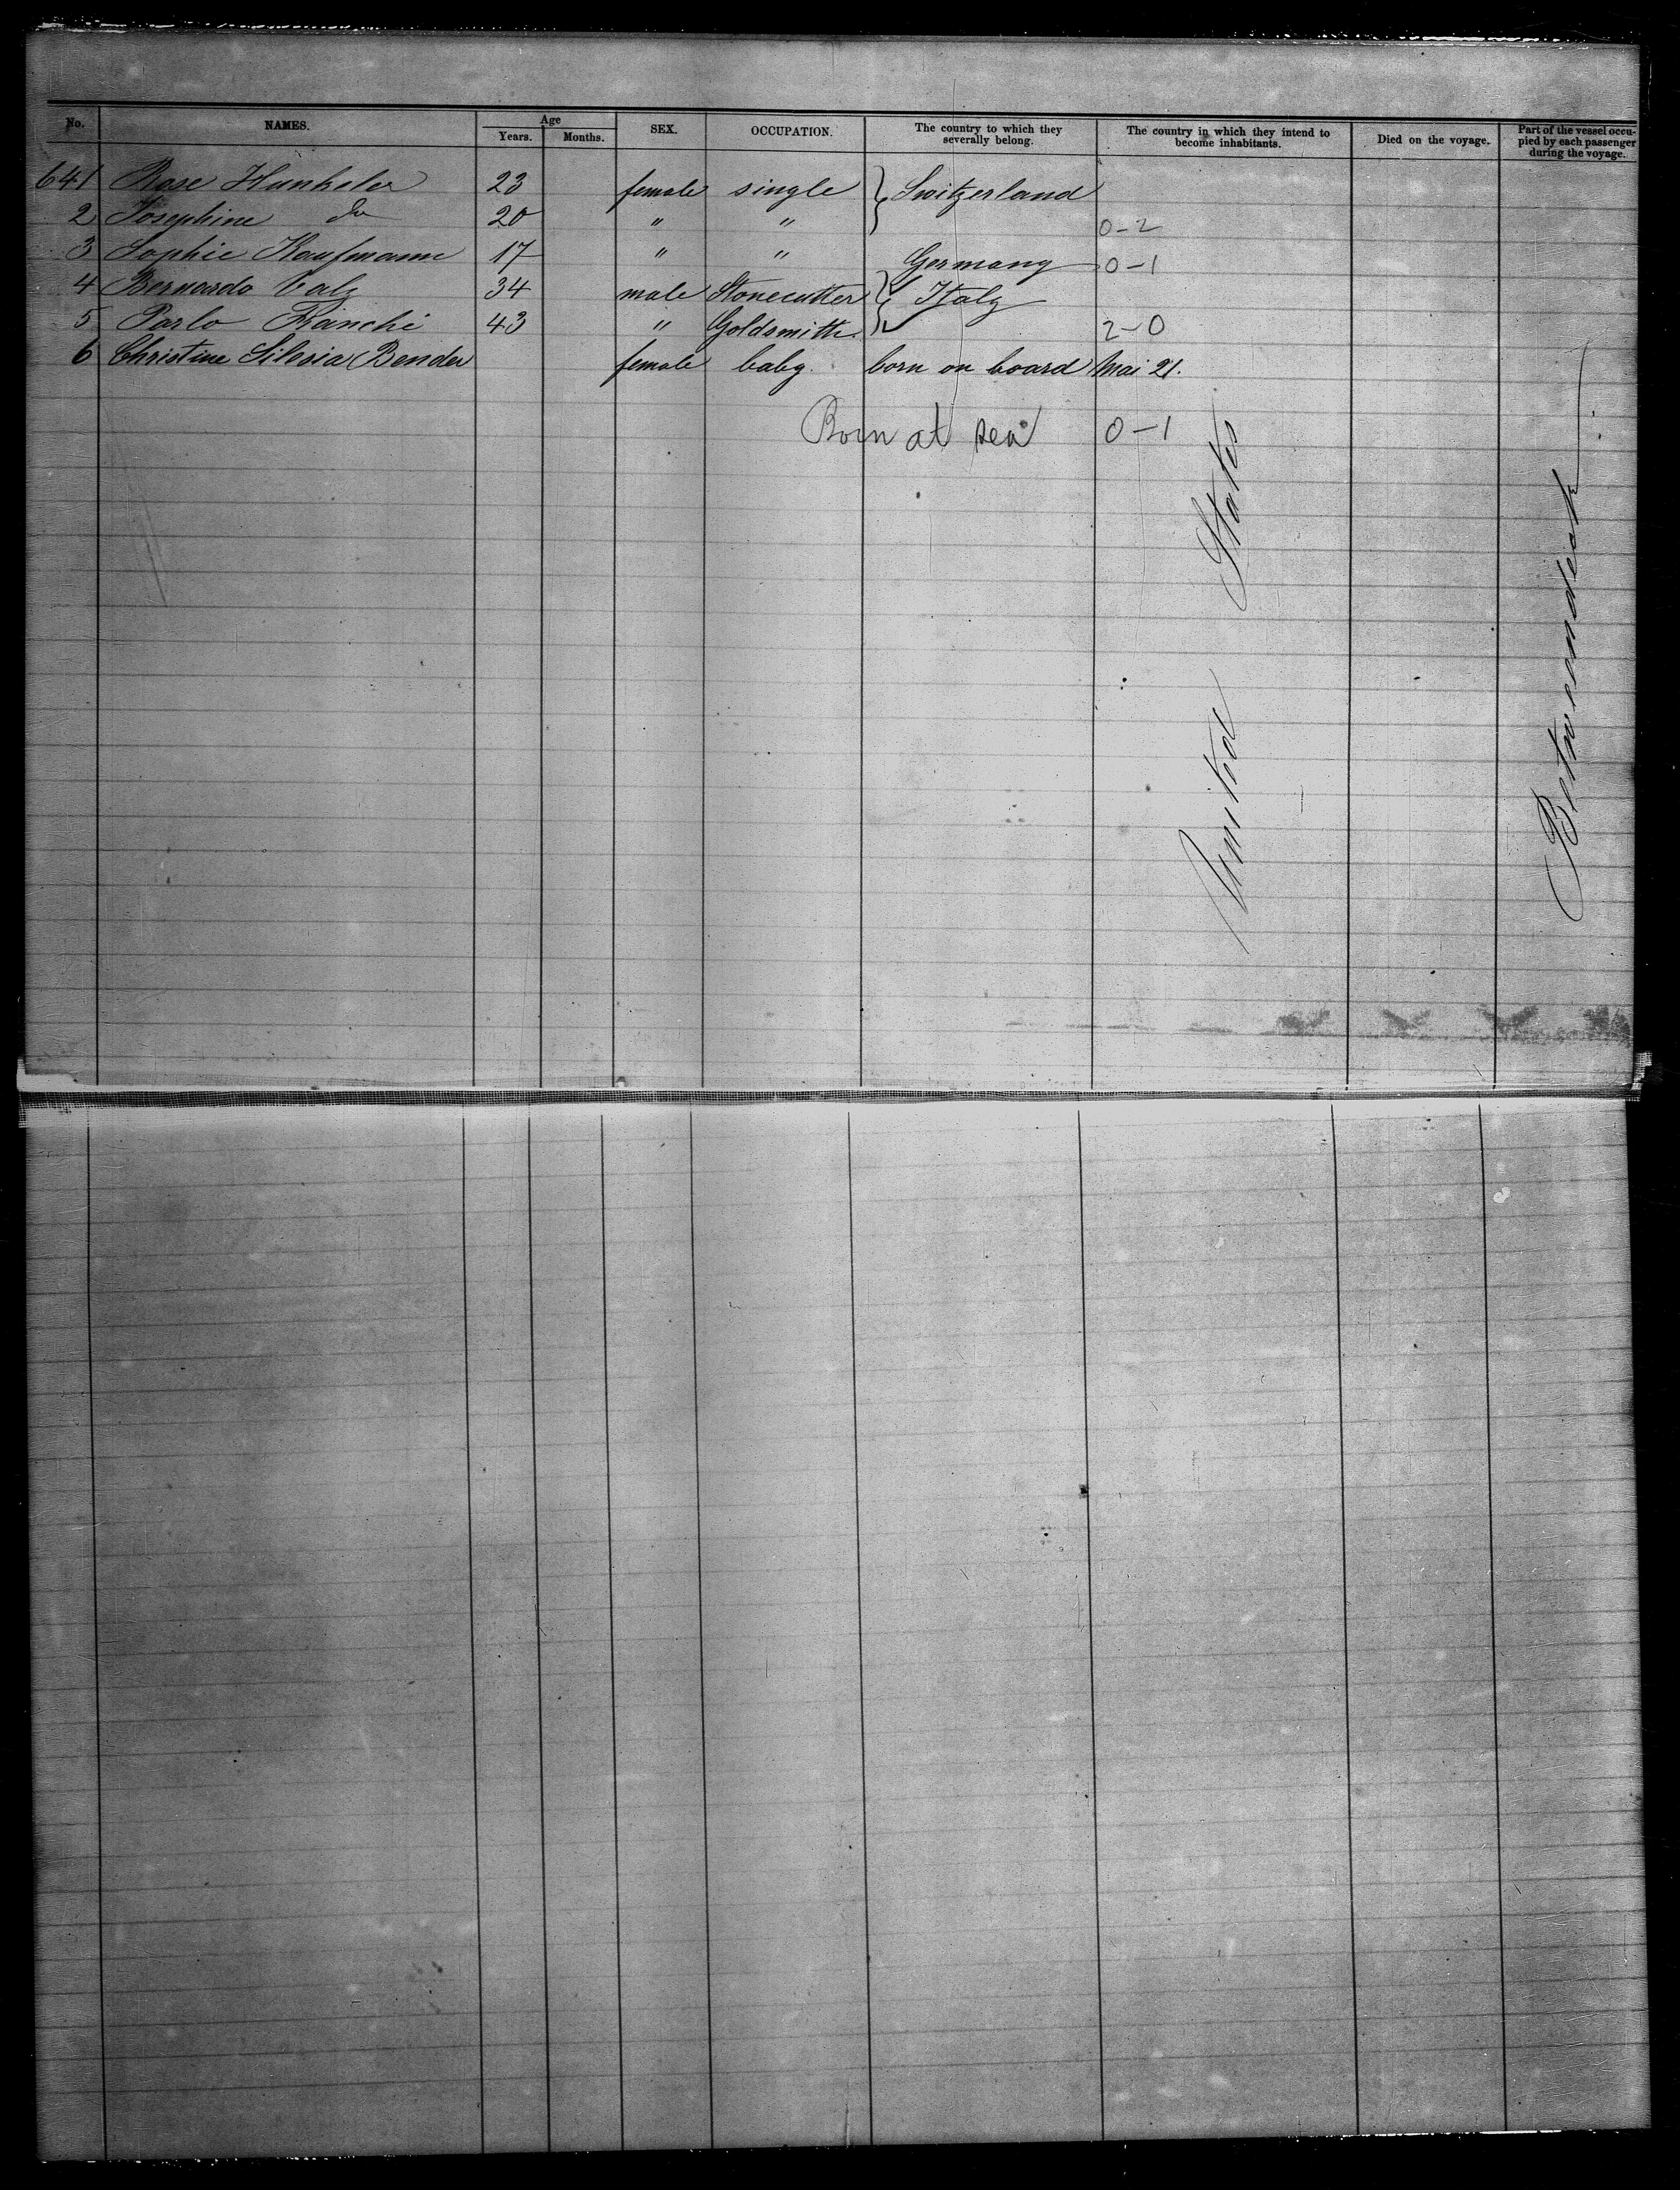 No. NAMES. Age Years. Months. SEX. OCCUPATION. The country to which they severally belong. The country in which they intend to become inhabitants. Died on the voyage. Part of the vessel occupied by each passenger during the voyage.
641 Rose Hunkeler 23 female single } Switzerland
2 Josephine do 20 " " 0-2
3 Sophie Kaufmann 17 " " Germany 0-1
4 Bernardo Calz 34 male Stonecutter } Italy
5 Parlo Franchi 43 " Goldsmith 2-0
6 Christine Silesia Bender female baby born on board Mai 21.
Born at sea 0-1
United States
Betweendeck